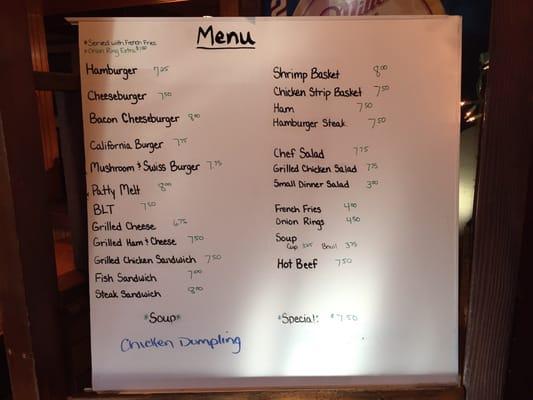 Menu
*Served with French Fries
*Onion Ring Extra $1.00
Hamburger 7.25
Cheeseburger 7.50
Bacon Cheeseburger 8.00
California Burger 7.75
Mushroom & Swiss Burger 7.75
Patty Melt 8.00
BLT 7.50
Grilled Cheese 6.75
Grilled Ham & Cheese 7.50
Grilled Chicken Sandwich 7.50
Fish Sandwich 7.00
Steak Sandwich 8.00
*Soup*
Chicken Dumpling
Shrimp Basket 8.00
Chicken Strip Basket 7.50
Ham 7.50
Hamburger Steak 7.50
Chef Salad 7.75
Grilled Chicken Salad 7.75
Small Dinner Salad 3.00
French Fries 4.00
Onion Rings 4.50
Soup
Cup Bowl 3.75
Hot Beef 7.50
*Special: *7.50